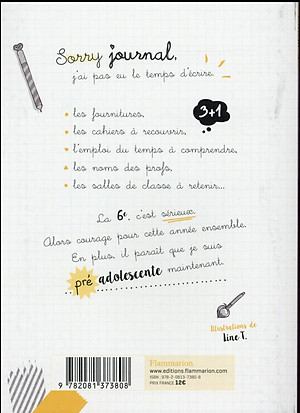 Sorry journal,
j'ai pas eu le temps d'écrire.
• les fournitures,
3+1
• les cahiers à recouvrir,
• l'emploi du temps à comprendre,
• les noms des profs,
• les salles de classe à retenir...
La 6e, c'est sérieux.
Alors courage pour cette année ensemble.
En plus, il paraît que je suis
pré adolescente maintenant.
Illustrations de
Line T.
Flammarion
www.editions.flammarion.com
ISBN : 978-2-0813-7380-8
PRIX FRANCE 12€
9 782081 373808